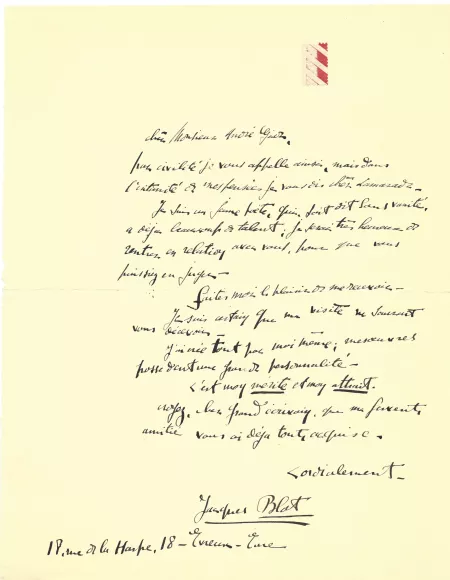 cher Monsieur André Gide,
par civilité je vous appelle ainsi, mais dans
l'intimité de mes pensées je vous dis cher camarade –
Je suis un jeune poète, qui, soit dit sans vanité,
a déjà beaucoup de talent; je serai très heureux de
rentrer en relation avec vous, pour que vous
puissiez en juger –
faites moi le plaisir de me recevoir –
Je suis certain que ma visite ne saurait
vous décevoir –
j'ai créé tout par moi même; mes œuvres
possèdent une grande personnalité –
c'est mon mérite et mon attrait.
croyez, cher grand écrivain, que ma fervente
amitié vous ai déjà toute acquise.
Cordialement –
Jacques Blot
18, rue de la Harpe, 18 – Evreux – Eure